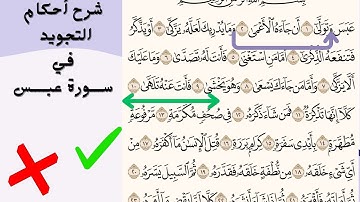 شرح أحكام
التجويد
في
سورة عبس
عَبَسَ وَتَوَلَّىٰٓ ١ أَن جَآءَهُ ٱلْأَعْمَىٰ ٢ وَمَا يُدْرِيكَ لَعَلَّهُۥ يَزَّكَّىٰٓ ٣ أَوْ يَذَّكَّرُ
فَتَنفَعَهُ ٱلذِّكْرَىٰٓ ٤ أَمَّا مَنِ ٱسْتَغْنَىٰ ٥ فَأَنتَ لَهُۥ تَصَدَّىٰ ٦ وَمَا عَلَيْكَ
أَلَّا يَزَّكَّىٰ ٧ وَأَمَّا مَن جَآءَكَ يَسْعَىٰ ٨ وَهُوَ يَخْشَىٰ ٩ فَأَنتَ عَنْهُ تَلَهَّىٰ ١٠
كَلَّآ إِنَّهَا تَذْكِرَةٌ ١١ فَمَن شَآءَ ذَكَرَهُۥ ١٢ فِى صُحُفٍ مُّكَرَّمَةٍ ١٣ مَّرْفُوعَةٍ
مُّطَهَّرَةٍۭ ١٤ بِأَيْدِى سَفَرَةٍ ١٥ كِرَامٍۭ بَرَرَةٍ ١٦ قُتِلَ ٱلْإِنسَٰنُ مَآ أَكْفَرَهُۥ ١٧ مِنْ
أَىِّ شَىْءٍ خَلَقَهُۥ ١٨ مِن نُّطْفَةٍ خَلَقَهُۥ فَقَدَّرَهُۥ ١٩ ثُمَّ ٱلسَّبِيلَ يَسَّرَهُۥ ٢٠